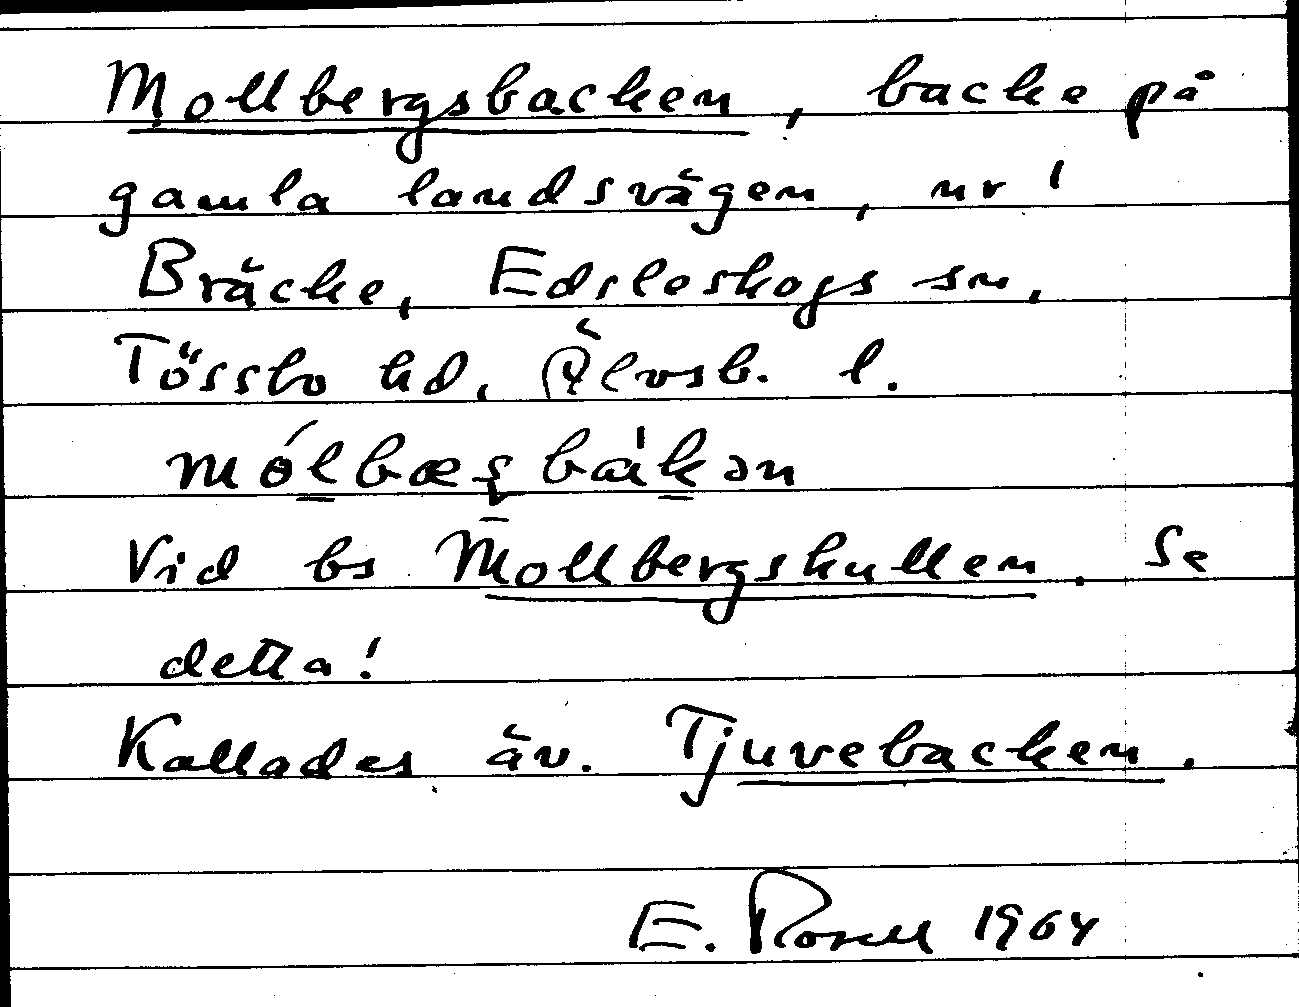 Mollbergsbacken, backe på
gamla landsvägen, nr 1
Bräcke, Edsleskogs sn,
Tössbo hd, Älvsb. l.
Vid bs Mollbergskullen. Se
detta!
Kallades äv. Tjuvebacken.
E. Rosell 1964